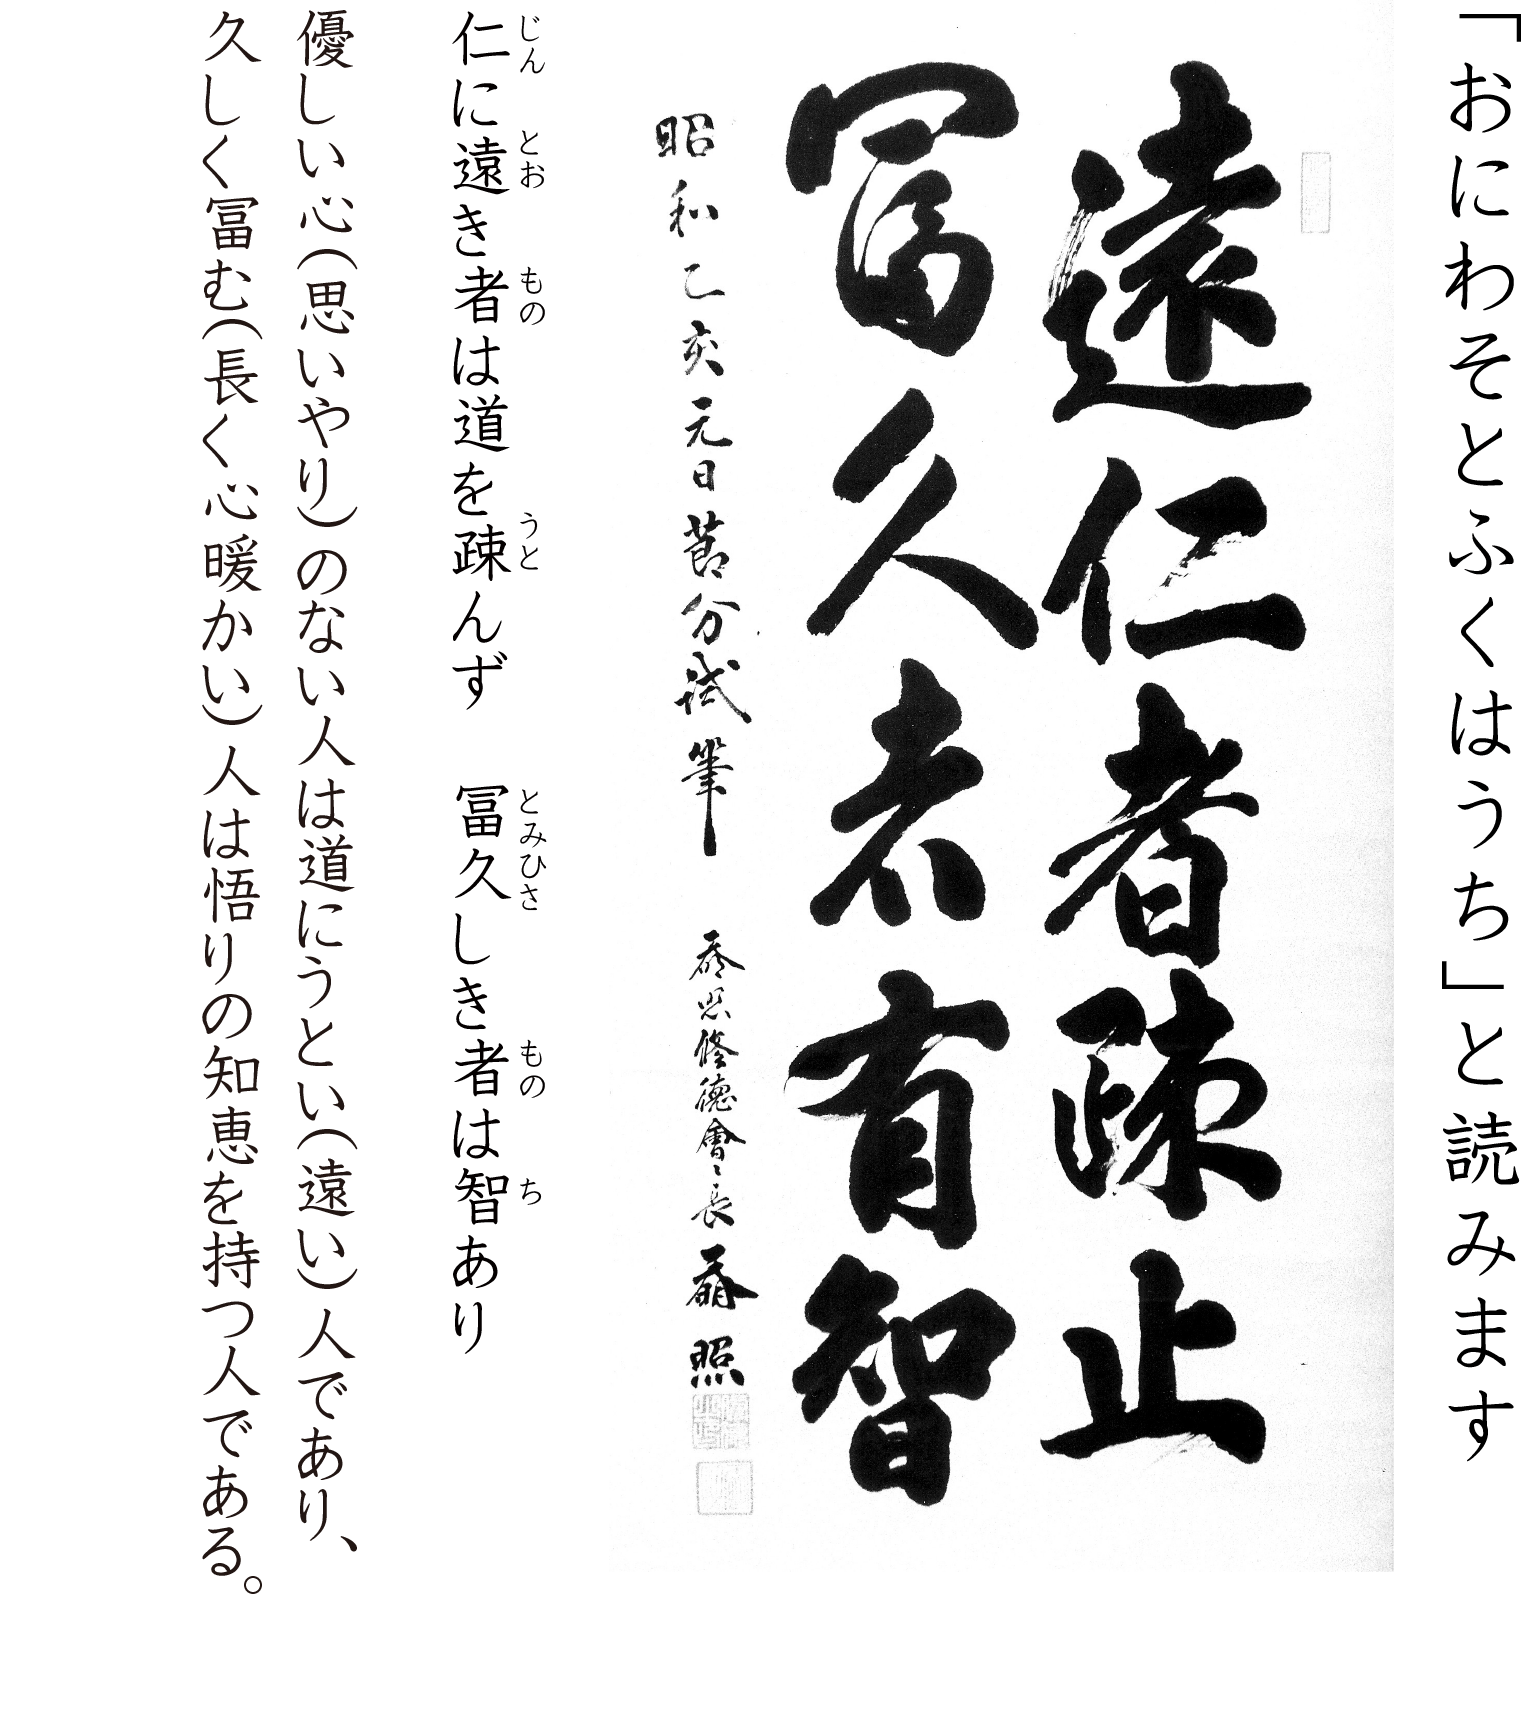 「おにわそとふくはうち」と読みます
遠仁者疎止
冨久者有智
昭和乙亥元日節分試筆 泰照修徳會々長 泰照
仁に遠き者は道を疎んず 冨久しき者は智あり
じん とお もの うと とみひさ もの ち
優しい心(思いやり)のない人は道にうとい(遠い)人であり、
久しく冨む(長く心暖かい)人は悟りの知恵を持つ人である。